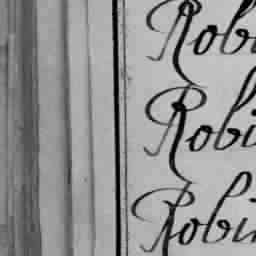 Robi
Robi
Robin